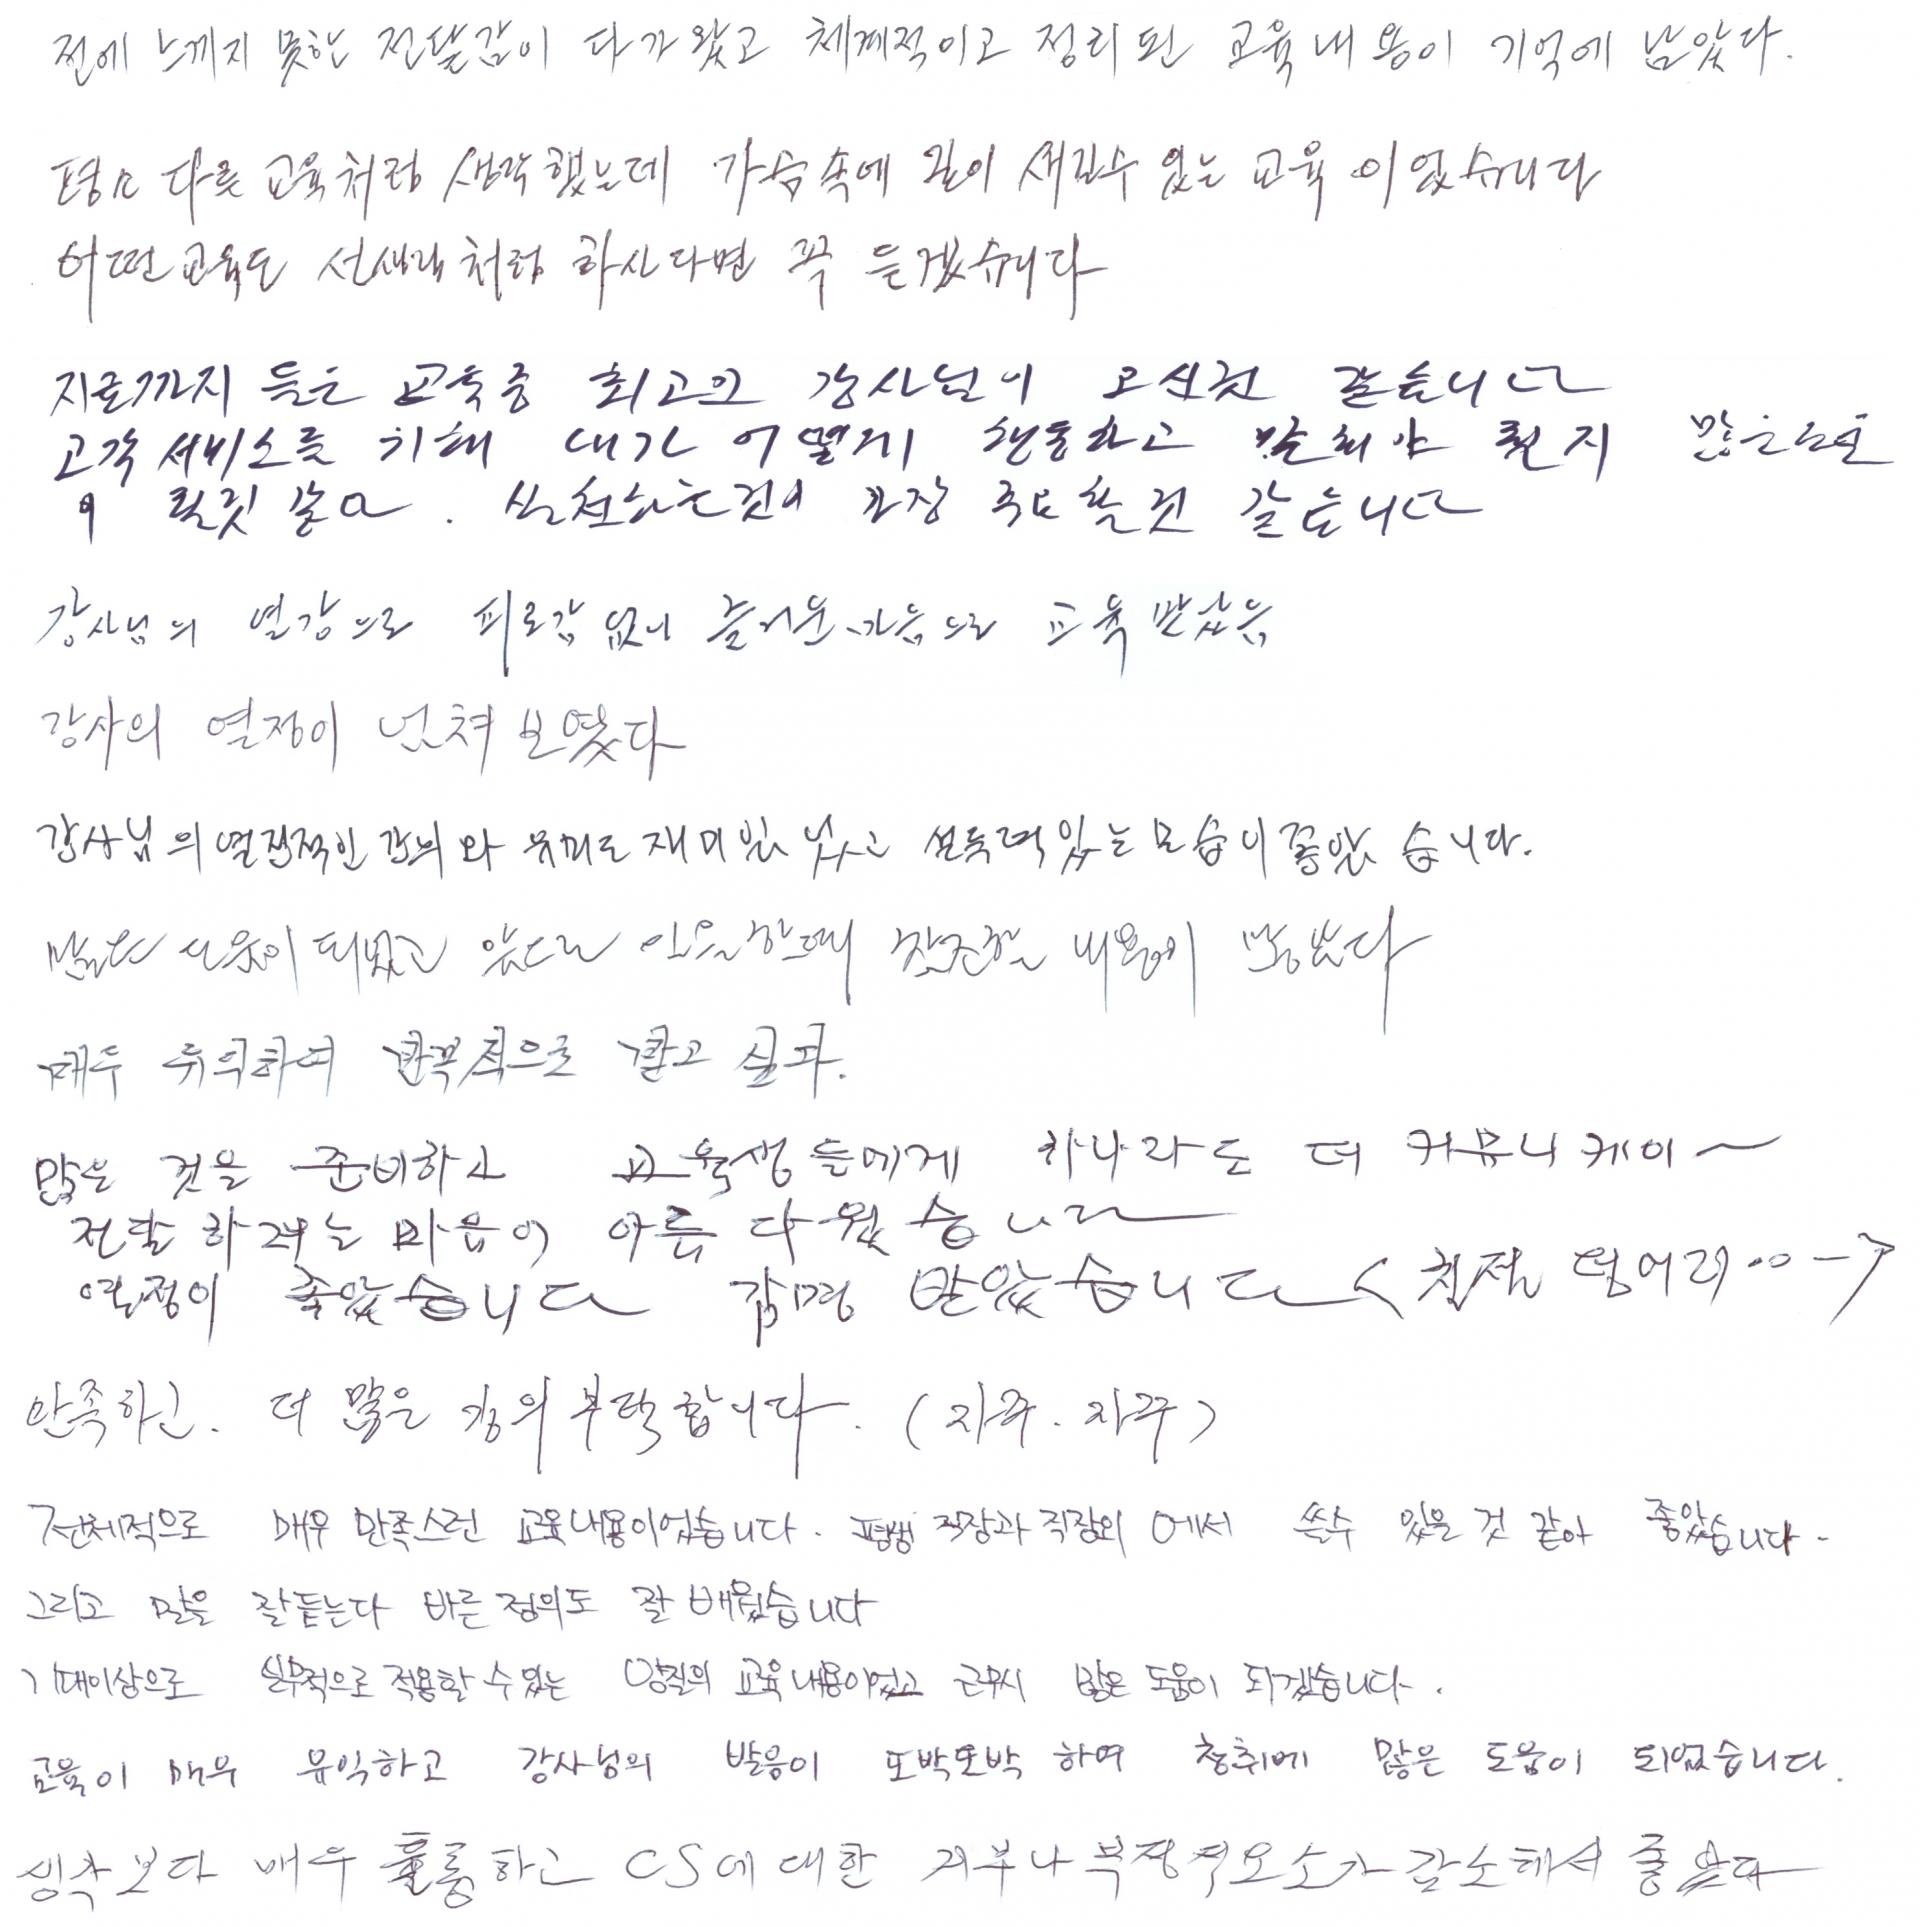 전에 느끼지 못한 전달감이 다가왔고 체계적이고 정리된 교육내용이 기억에 남았다.
평소 다른 교육처럼 생각했는데 가슴속에 깊이 새길수 있는 교육 이었습니다
어떤교육도 선생님처럼 하신다면 꼭 듣겠습니다
지금까지 들은 교육중 최고의 강사님이 오신것 같습니다
고객서비스를 위해 내가 어떻게 행동하고 말해야 할지 많은도움
이 될것 같다. 실천하는것이 가장 중요할것 같습니다
강사님의 열강으로 피로감 없이 즐거운 마음으로 교육받았음
강사의 열정이 넘쳐 보였다
강사님의 열정적인 강의와 유머도 재미있었고 설득력있는 모습이 좋았습니다.
도움이 되었고 앞으로 내용이 많았다
매우 유익하여 반복적으로 받고 싶다.
많은 것을 준비하사 교육생들에게 하나라도 더 커뮤니케이~
전달하려는 마음이 아름다웠습니다
열정이 좋았습니다 감명 받았습니다 < 친절 덩어리..->
만족하고. 더 많은 강의 부탁합니다. (자주. 자꾸)
전체적으로 매우 만족스런 교육내용이었습니다. 평생 직장과 직장외 에서 쓸수 있을 것 같아 좋았습니다.
그리고 말을 잘듣는다 바른 정의도 잘 배웠습니다
기대이상으로 실무적으로 적용할 수 있는 양질의 교육내용이었고 근무시 많은 도움이 되겠습니다.
교육이 매우 유익하고 강사님의 발음이 또박또박 하여 청취에 많은 도움이 되었습니다.
생각보다 매우 훌륭하고 CS에 대한 거부나 부정적요소가 감소해서 좋았다